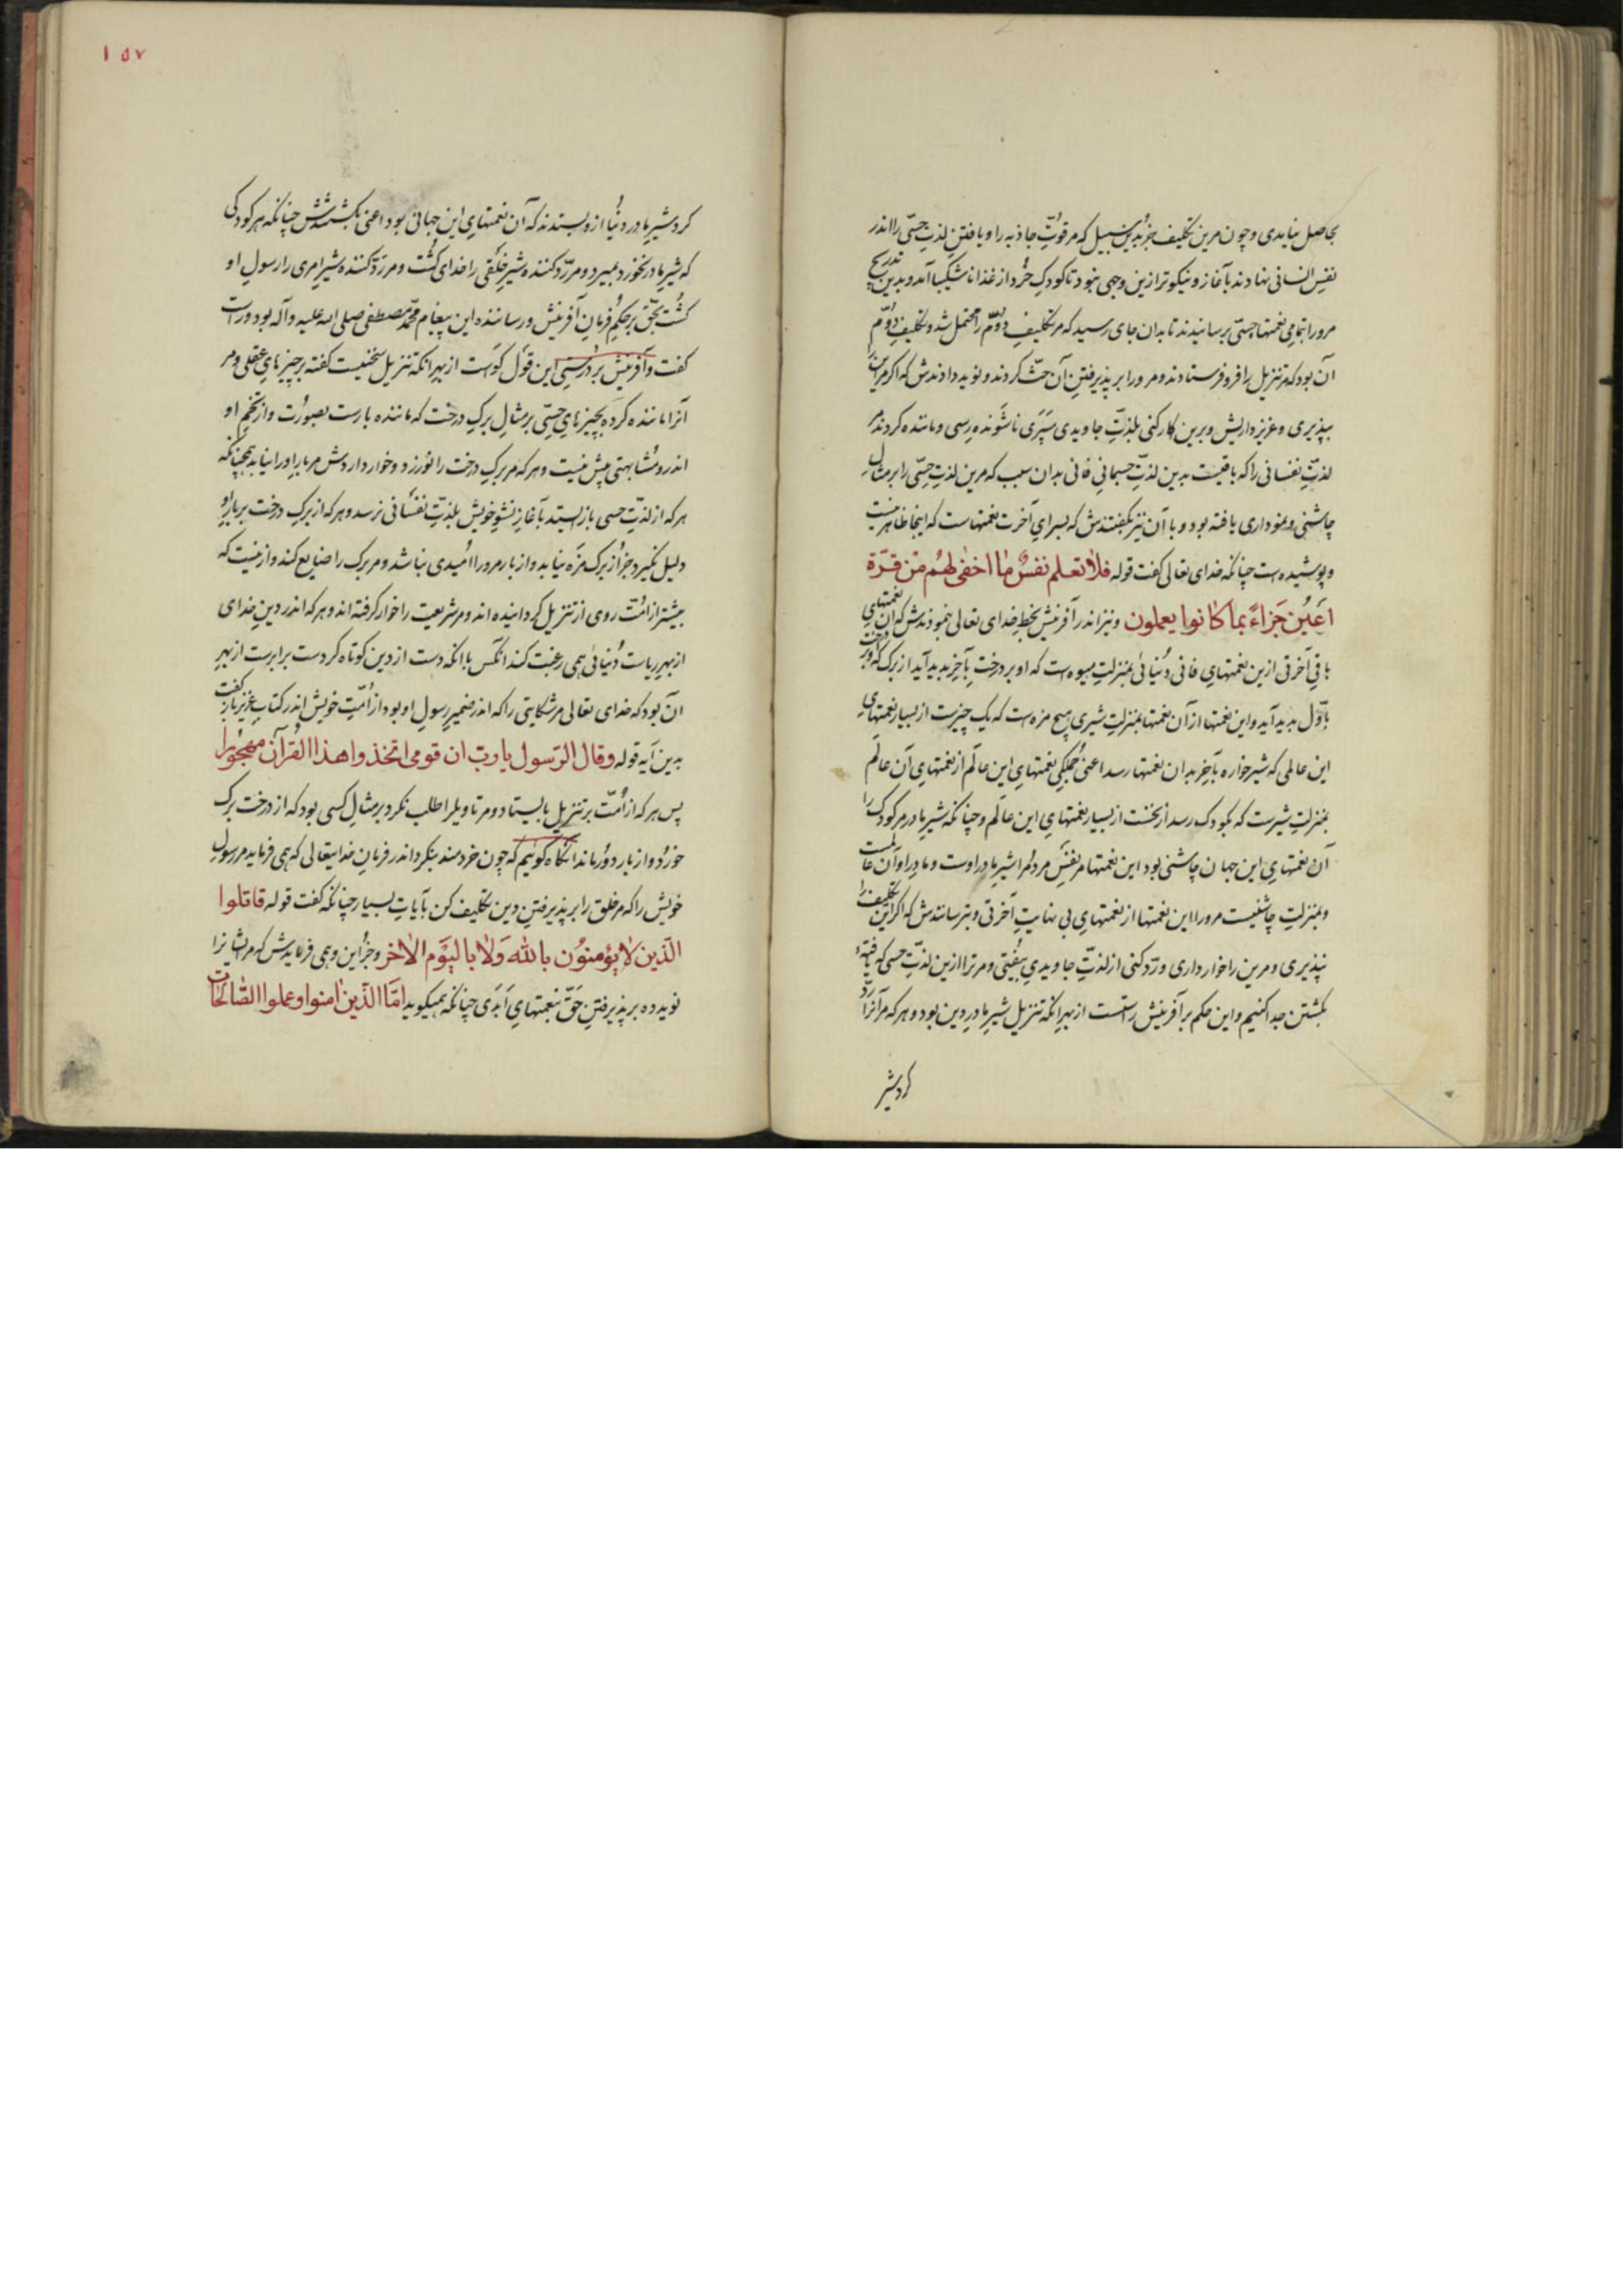 بحاصل نیایدی و چون مرین تکلیف جز بدین سبیل که مر قوّتِ جاذبه را و یافتنِ لذتِ حسّی را اندر
نفسِ انسانی نهادند بآغاز و نیکوتر ازین وجهی نبود تا کودکِ خُرد از غذا ناشکیبا آمد و بدین تدریج
مرورا بتمامیِ نعمتهاء حسّی برسانیدند تا بدان جای رسید که مر تکلیفِ دوُّم را محتمل شد و تکلیفِ دوُّم
آن بود که مر تنزیل را فرو فرستادند و مر ورا بر پذیرفتنِ آن حثّ کردند و نوید دادندش که اگر مر این را
بپذیری و عزیز داریش و برین کار کنی بلذّتِ جاویدی سَپَری ناشَونده رِسی و ماننده کردند مر
لذتِّ نفسانی را که باقیست بدین لذّتِ جسمانیِ فانی بدان سبب که مرین لذتِ حِسّی را بر مثالِ
چاشنی و نموداری یافته بود و با آن نیز بگفتندش که بسرای آخرت نعمتهاست که اینجا ظاهر نیست
و پوشیده است چنانکه خدای تعالی گفت قوله فلا تعلم نفسٌ ما اخفی لهُم من قُرّة
اَعیُن جَزاءً بما کانوا یعملون و نیز اندر آفرینش بخطِ خدای تعالی بنمودندش که آن نعمتهای
باقیِ آخرتی ازین نعمتهایِ فانی دُنیائی بمنزلتِ میوه است که او بر درخت بآخِر پدید آید از برگ که او بر درخت
باوّل پدید آید و این نعمتها از آن نعمتها بمنزلتِ شیری بیح مزه است که یک چیزست از بسیار نعمتهایِ
این عالمی که شیرخواره بآخِر بدان نعمتها رسد اعنی جُملگیِ نعمتهایِ این عالَم از نعمتهایِ آن عالَم
بمنزلتِ شیرست که بکودک رسد از نخست از بسیار نعمتهایِ این عالَم و چنانکه شیرِ مادر مر کودک را
آن نعمتهایِ این جهان چاشنی بود این نعمتها مر نفسِ مردم را شیرِ مادر اوست و مادرِ او آن عالمست
و بمنزلتِ چاشنیست مرورا این نعمتها از نعمتهایِ بی نهایتِ آخرتی و بترسانندش که اگر این تکلیف را
نپذیری و مرین را خوار داری و رَدّ کنی از لذتِّ جاویدی بیُفتی و مر ترا ازین لذّتِ حسی که یافتهٔ
بکُشتن جدا کنیم و این حکم بر آفرینش راستست از بهرِ آنکه تنزیل شیرِ مادرِ دین بود و هر که مر آنرا رَدّ
کرد شیر
۱۵۷
کرد شیرِ مادر دنُیا ازو بستدند که آن نعمتهایِ این جهانی بود اعنی بکُشتندش چنانکه هر کودکی
که شیرِ مادر نخورد بمیرد و مر رَدّ کننده شیرِ خلقی را خدای کُشت و مر رَدّ کننده شیرِ امری را رسولِ او
کُشت بحّق بر حکمِ فرمانِ آفرینش و رساننده این پیغام محمّد مصطفی صلی الله علیه و آله بود و راست
گفت و آفرینش بر دُرستیِ این قول گُواست از بهرِ آنکه تنزیل سخنیست گفته بر چیزهایِ عقلی و مر
آنرا ماننده کرده بچیزهایِ حِسّی بر مثالِ برگِ درخت که ماننده بارست بصورت و از تخمِ او
اندرو مُشابهتی بیش نیست و هر که مر برگِ درخت را نورزد و خوار داردش مر بارِ اورا نیابد همچنانکه
هر که از لذّتِ حسی باز ایستد بآغازِ نشوِ خویش بلذّتِ نفسانی نرسد و هر که از برگِ درخت بر بارِ او
دلیل نگیرد جز از برگ مزه نیابد و از بار مرورا اُمیدی نباشد و مر برگ را ضایع کند و ازینست که
بیشتر از اُمّت روی از تنزیل گردانیده اند و مر شریعت را خوار گرفته اند و هر که اندر دینِ خدای
از بهرِ ریاست دُنیائی همی رغبت کند آنکس با آنکه دست از دین کوتاه کردست برابرست از بهرِ
آن بود که خدای تعالی مر شکایتی را که اندر ضمیرِ رسولِ او بود از اُمّتِ خویش اندر کتابِ عزیز باز گفت
بدین آیه قوله وقال الرّسول یا ربّ ان قومی اتخذوا هذا القُرآن مهجُورا
پس هر که از اُمّت بر تنزیل بایستاد و مر تاویلرا طلب نکرد بر مثالِ کسی بود که از درخت برگ
خورَد و از بار دوُر ماند آنگاه گوئیم که چون خردمند بنگرد اندر فرمانِ خدایتعالی که همی فرماید مر رسولِ
خویش را که مر خلق را بر پذیرفتنِ دین تکلیف کن بآیاتِ بسیار چنانکه گفت قوله قاتلوا
الّذین لا یؤمنوُن باللّه وَلا بالیَوم الاخر و جز این و همی فرمایدش که مر ایشانرا
نوید ده بر پذیرفتنِ حَقّ بنعمتهایِ اَبَدی چنانکه همیگوید امّا الّذین امنوا و عملوا الصّالحات